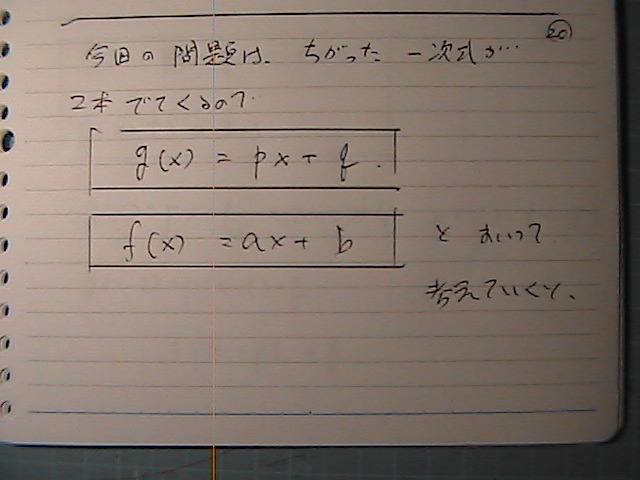 20
今回の問題は、ちがった 一次式が…
2本 でてくるので
g(x) = px + q.
f(x) = ax + b と おいて
考えていくと、